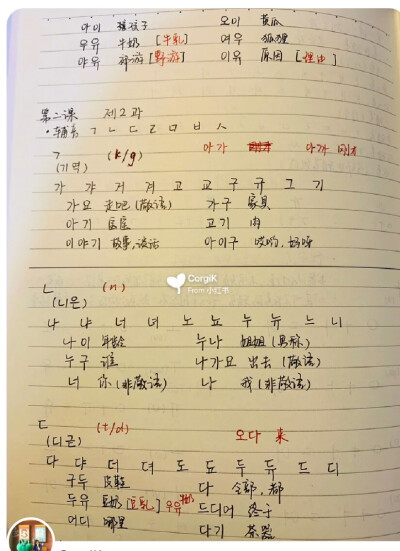 아이 小孩子 오이 黄瓜
우유 牛奶 [牛乳] 여우 狐狸
야유 郊游 [野游] 이유 原因 [理由]
第二课 제2과
·辅音 ㄱ ㄴ ㄷ ㄹ ㅁ ㅂ ㅅ
ㄱ (k/g) 아가 아까 刚才
(기역)
가 갸 거 겨 고 교 구 규 그 기
가요 走吧 (敬语) 가구 家具
아기 고기 肉
이야기 故事,谈话 아이구 哎哟,
CorgiK
From 小红书
ㄴ (n)
(니은)
나 냐 너 녀 노 뇨 누 뉴 느 니
나이 年龄 누나 姐姐 (男称)
누구 谁 나가요 出去 (敬语)
너 你 (非敬语) 나 我 (非敬语)
ㄷ (t/d) 오다 来
(디귿)
다 댜 더 뎌 도 됴 두 듀 드 디
구두 皮鞋 다 全部,都
두유 豆奶 [豆乳] 우유 牛奶 드디어 终于
어디 哪里 다기 茶器